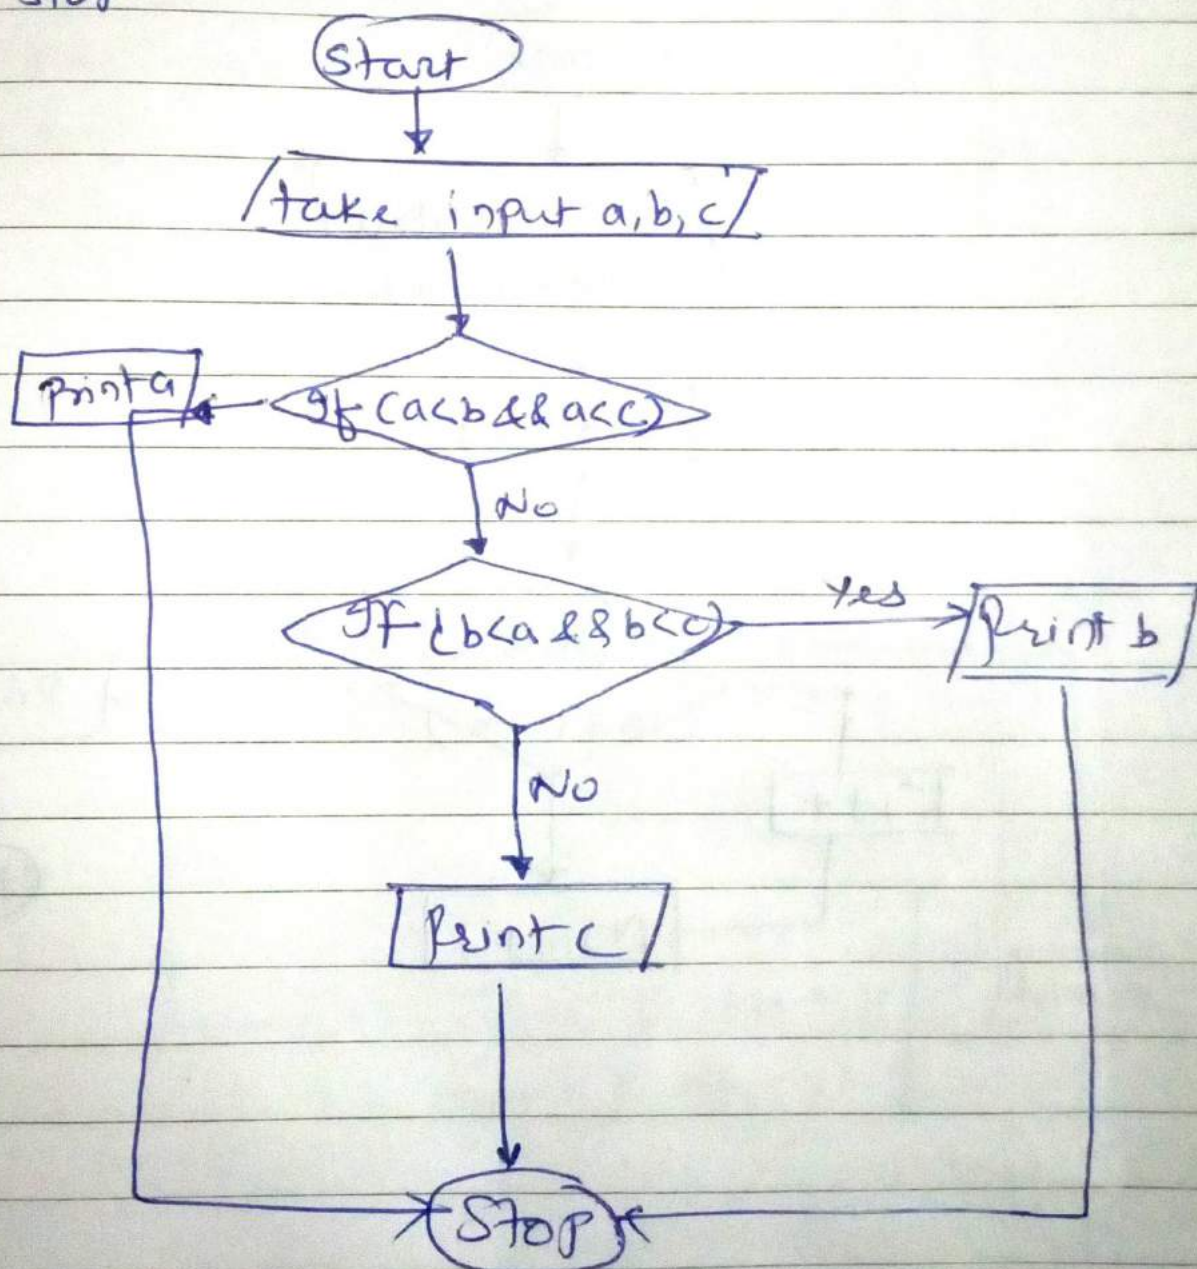 Stop
Start
take input a, b, c
Print a
If (a<b && a<c)
No
If (b<a && b<c)
Yes
Print b
No
Print c
Stop